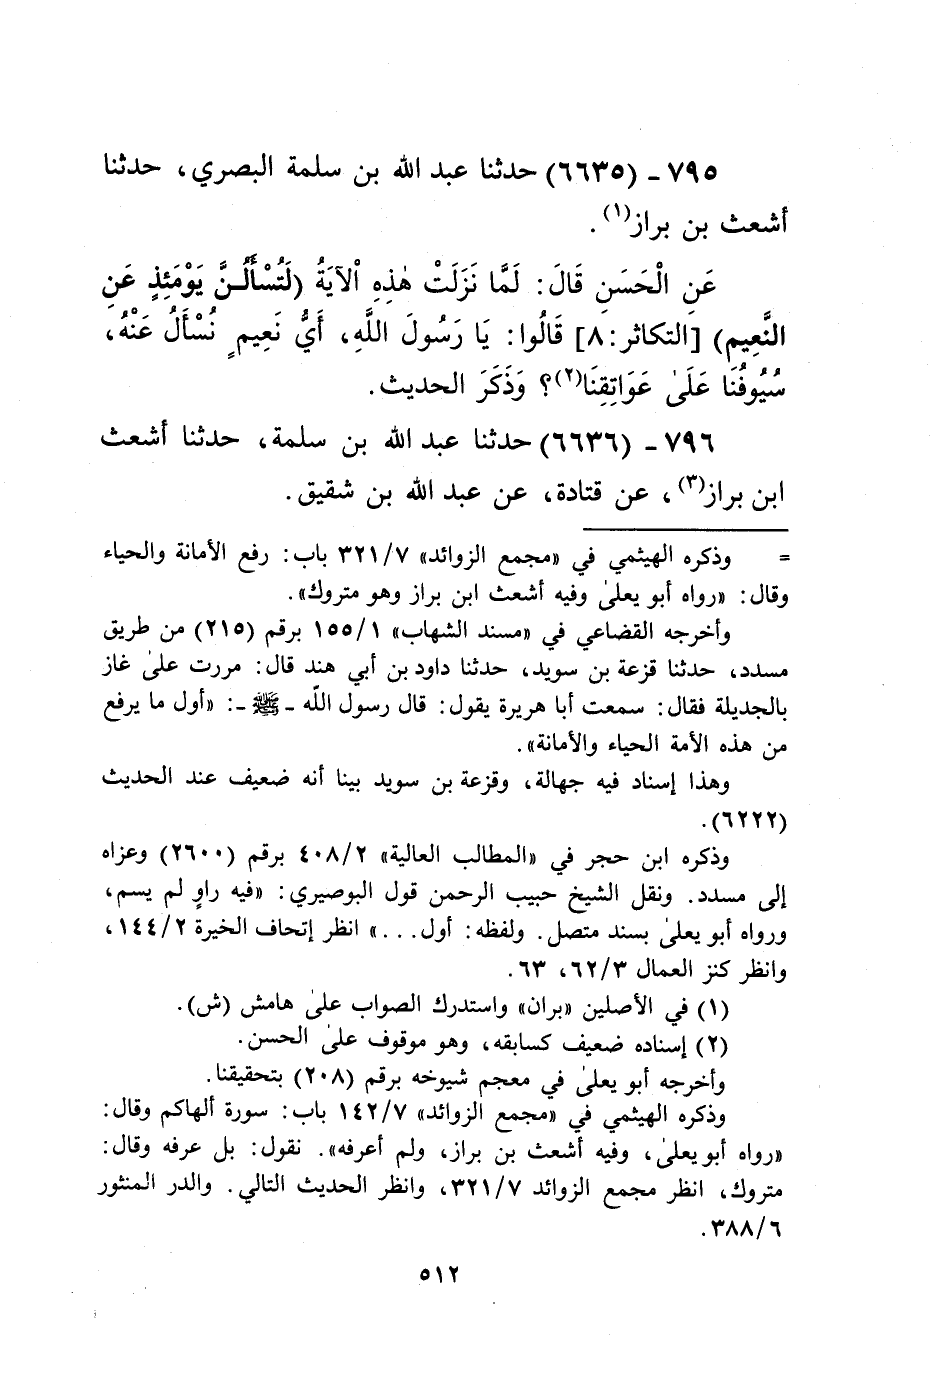 ٧٩٥ - (٦٦٣٥) حدثنا عبد الله بن سلمة البصري، حدثنا
أشعث بن براز(١).
عَنِ الْحَسَنِ قَالَ: لَمَّا نَزَلَتْ هٰذِهِ الْآيَةُ (لَتُسْأَلُنَّ يَوْمَئِذٍ عَنِ
النَّعِيمِ) [التكاثر:٨] قَالُوا: يَا رَسُولَ اللَّهِ، أَيُّ نَعِيمٍ نُسْأَلُ عَنْهُ،
سُيُوفُنَا عَلَىٰ عَوَاتِقِنَا(٢)؟ وَذَكَرَ الحديث.
٧٩٦ - (٦٦٣٦) حدثنا عبد الله بن سلمة، حدثنا أشعث
ابن براز(٣)، عن قتادة، عن عبد الله بن شقيق.
= وذكره الهيثمي في «مجمع الزوائد» ٣٢١/٧ باب: رفع الأمانة والحياء
وقال: «رواه أبو يعلىٰ وفيه أشعث ابن براز وهو متروك».
وأخرجه القضاعي في «مسند الشهاب» ١٥٥/١ برقم (٢١٥) من طريق
مسدد، حدثنا قزعة بن سويد، حدثنا داود بن أبي هند قال: مررت علىٰ غاز
بالجديلة فقال: سمعت أبا هريرة يقول: قال رسول الله - ﷺ -: «أول ما يرفع
من هذه الأمة الحياء والأمانة».
وهذا إسناد فيه جهالة، وقزعة بن سويد بينا أنه ضعيف عند الحديث
(٦٢٢٢).
وذكره ابن حجر في «المطالب العالية» ٤٠٨/٢ برقم (٢٦٠٠) وعزاه
إلى مسدد. ونقل الشيخ حبيب الرحمن قول البوصيري: «فيه راوٍ لم يسم،
ورواه أبو يعلىٰ بسند متصل. ولفظه: أول...» انظر إتحاف الخيرة ١٤٤/٢،
وانظر كنز العمال ٦٢/٣، ٦٣.
(١) في الأصلين «بران» واستدرك الصواب علىٰ هامش (ش).
(٢) إسناده ضعيف كسابقه، وهو موقوف علىٰ الحسن.
وأخرجه أبو يعلىٰ في معجم شيوخه برقم (٢٠٨) بتحقيقنا.
وذكره الهيثمي في «مجمع الزوائد» ١٤٢/٧ باب: سورة ألهاكم وقال:
«رواه أبو يعلىٰ، وفيه أشعث بن براز، ولم أعرفه». نقول: بل عرفه وقال:
متروك، انظر مجمع الزوائد ٣٢١/٧، وانظر الحديث التالي. والدر المنثور
٣٨٨/٦.
٥١٢